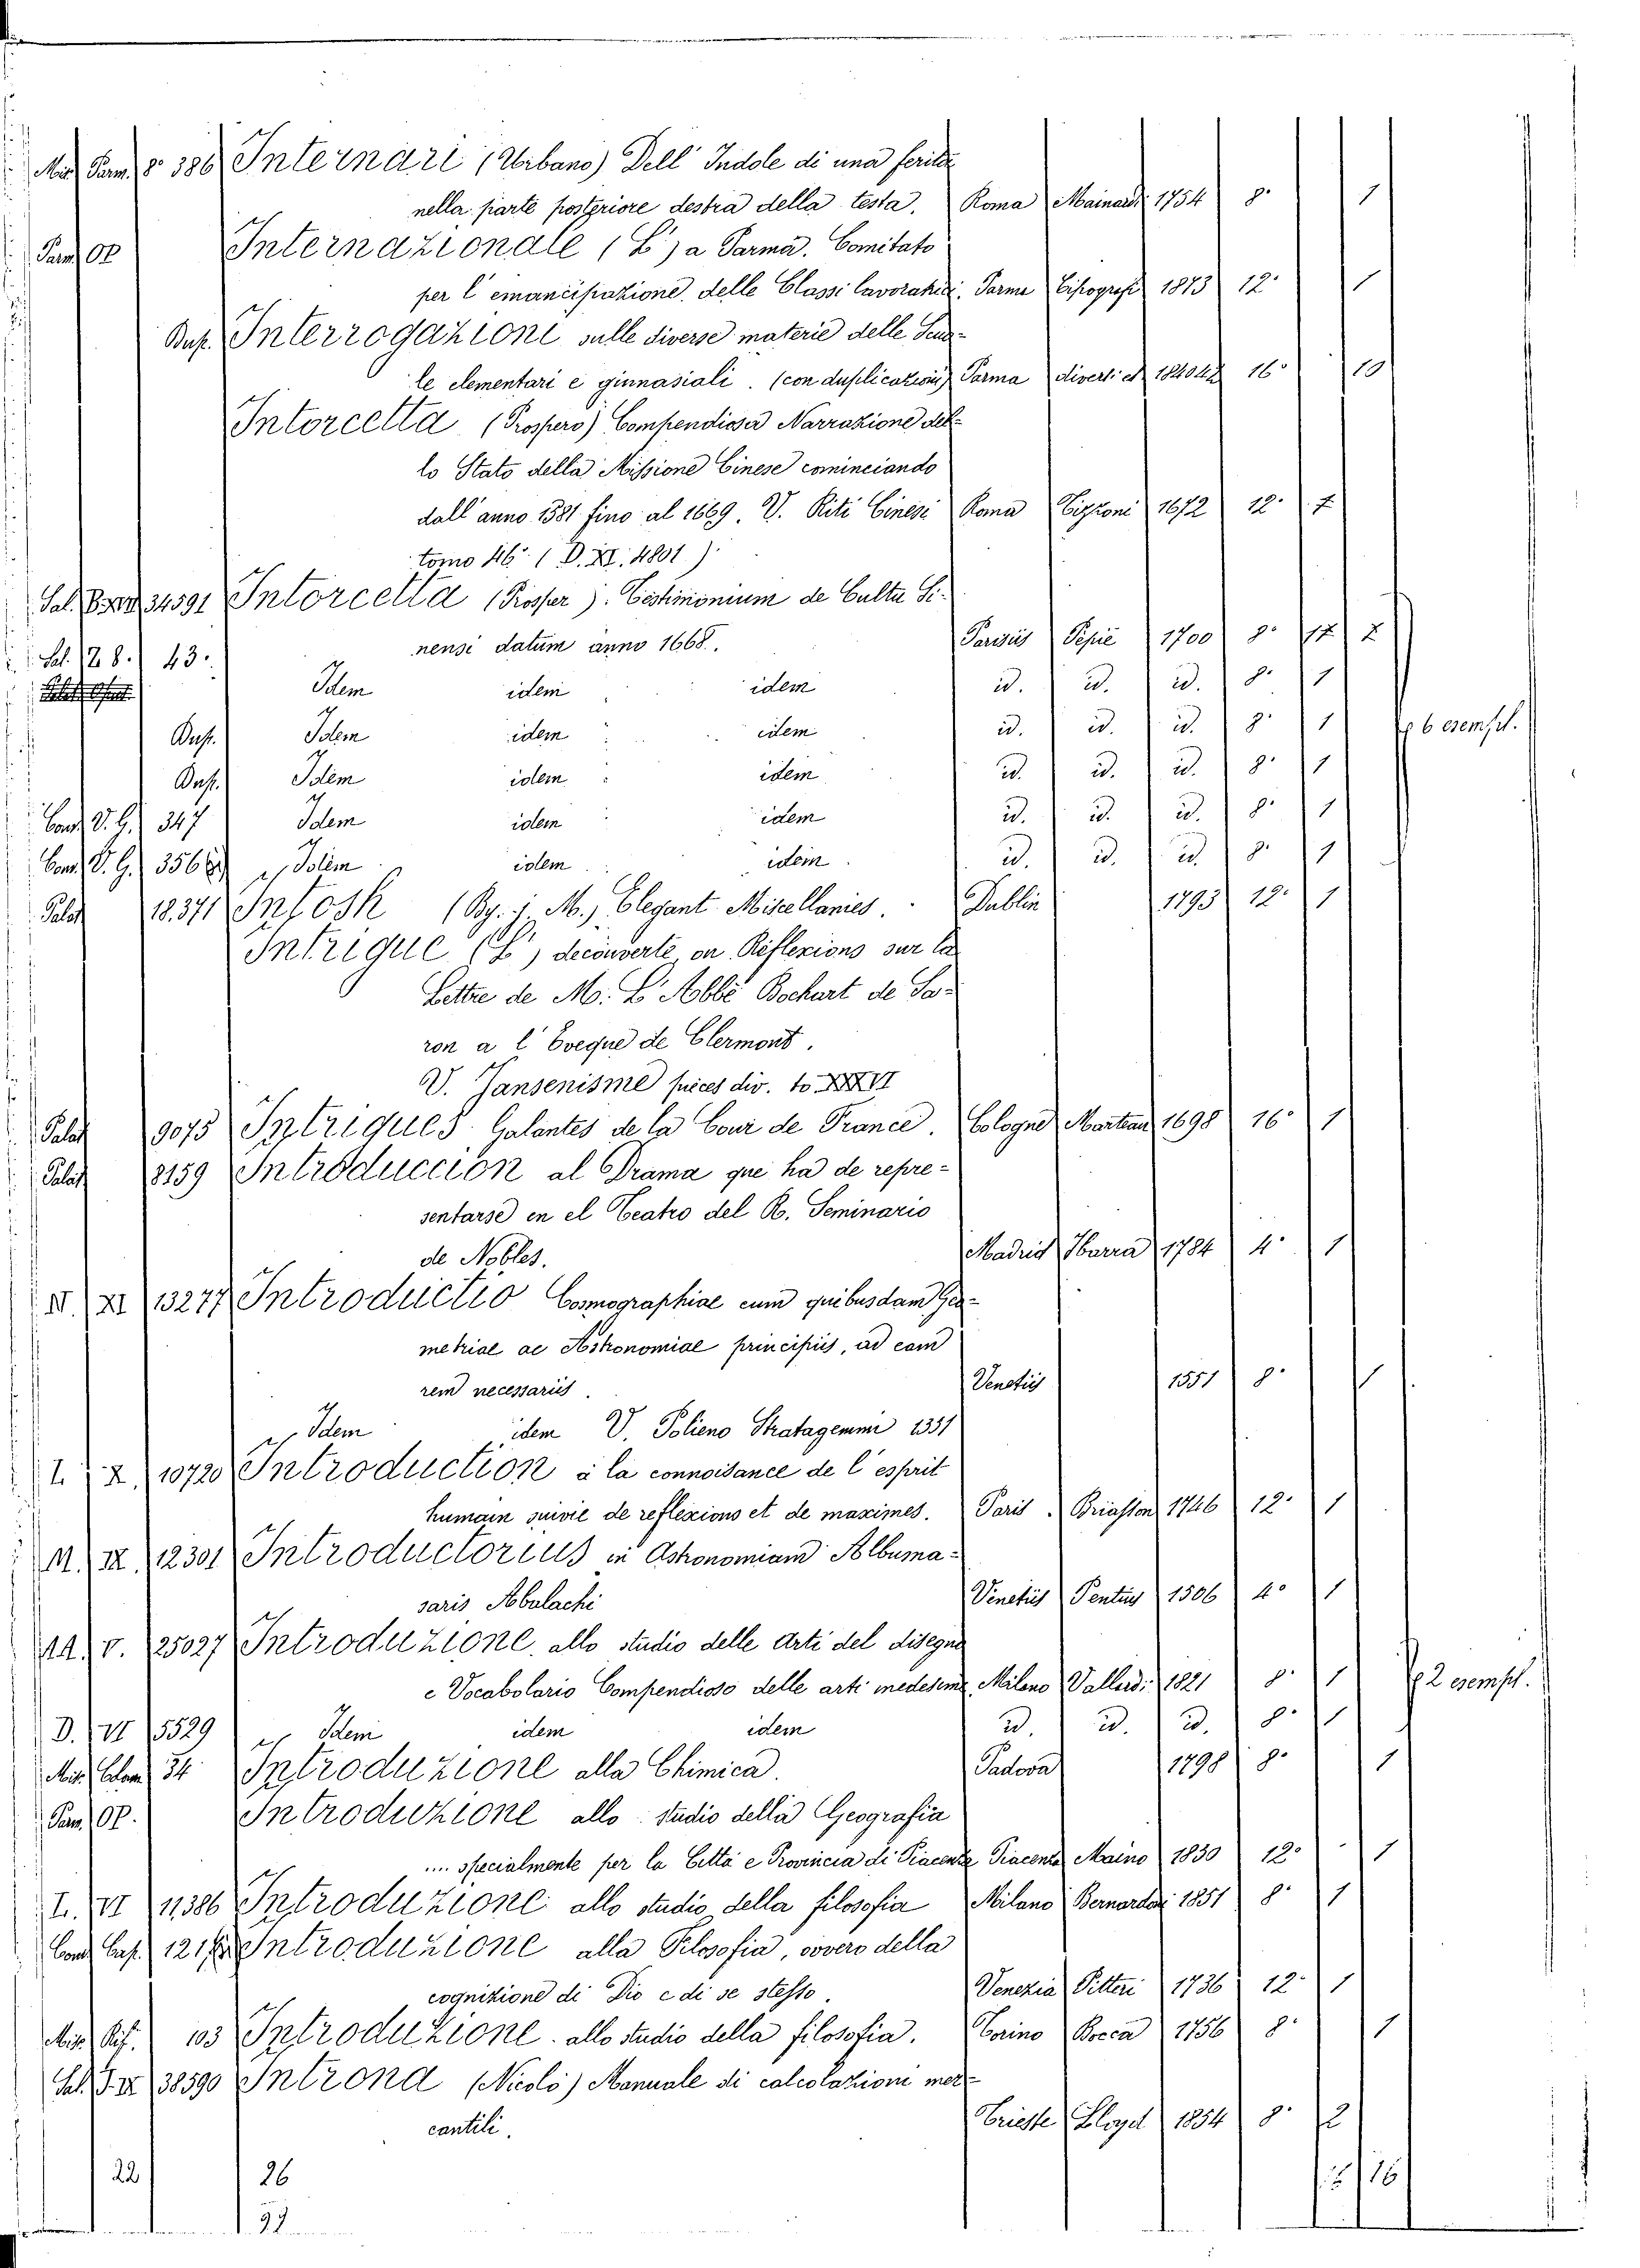 Mis. Parm. 8° 386 Internari (Urbano) Dell' Indole di una ferita
nella parte posteriore destra della testa. Roma Mainardi 1754 8° 1
Parm. OP Internazionale (L') a Parma. Comitato
per l'emancipazione delle Classi lavoratrici. Parma Tipografi 1873 12° 1
Bup. Interrogazioni sulle diverse materie delle Scuo-
le elementari e ginnasiali. (con duplicazioni) Parma diversi 16° 10
Intorcetta (Prospero) Compendiosa Narrazione del-
lo Stato della Missione Cinese cominciando
dall'anno 1581 fino al 1669. V. Riti Cinesi Roma Tizzoni 1672 12°
tomo 46° (D. XI. 4801)
Sal. 34591 Intorcetta (Prosper). Testimonium de Cultu Si-
nensi datum anno 1668. Parisiis Pepie 1700 8°
Sal. 28. 43. Idem idem idem id. id. id. 8° 1
Bup. Idem idem idem id. id. id. 8° 1 6 esempl.
Bup. Idem idem idem id. id. id. 8° 1
Cons. V. G. 347 Idem idem idem id. id. id. 8° 1
Cons. V. G. 356 Idem idem idem id. id. id. 8° 1
Palat. 18.371 Intosh (By. j. M.) Elegant Miscellanies. Dublin 1793 12° 1
Intrique (L') decouverte, ou Reflexions sur la
Lettre de M. L'Abbé Bochart de Sa-
ron a l'Eveque de Clermont.
V. Jansenisme pieces div. to XXXVI
Palat 9075 Intriques Galantes de la Cour de France. Cologne Marteau 1698 16° 1
Palat 8159 Introduccion al Drama que ha de repre-
sentarse en el Teatro del R. Seminario
de Nobles. Madrid Ibarra 1784 4° 1
N. XI 13277 Introductio Cosmographiae cum quibusdam Geo-
metriae ac Astronomiae principiis, ad eam
rem necessariis. Venetiis 1551 8° 1
Idem idem V. Polieno Stratagemmi 1551
I. X. 10720 Introduction à la connoisance de l'esprit
humain suivie de reflexions et de maximes. Paris. Briasson 1746 12° 1
M. IX. 12301 Introductorius in Astronomiam Albuma-
saris Abalachi Venetiis Pentius 1506 4° 1
AA. V. 25027 Introduzione allo studio delle Arti del disegno
e Vocabolario Compendioso delle arti medesime Milano Vallardi 1821 8° 1 2 esempl.
D. VI 5529 Idem idem idem id. id. id. 8° 1
Mis. Colom. 34 Introduzione alla Chimica. Padova 1798 8° 1
Parm. OP. Introduzione allo studio della Geografia
.... specialmente per la Città e Provincia di Piacenza Piacenza Maino 1830 12° 1
I. VI 11,386 Introduzione allo studio della filosofia Milano Bernardoni 1851 8° 1
Cons. Cap. Introduzione alla Filosofia, ovvero della
cognizione di Dio e di se stesso. Venezia Pitteri 1736 12° 1
103 Introduzione allo studio della filosofia. Torino Bocca 1756 8° 1
Sal. J. IX 38590 Introna (Nicolò) Manuale di calcolazioni mer-
cantili. Trieste Lloyd 1854 8° 2
22 26